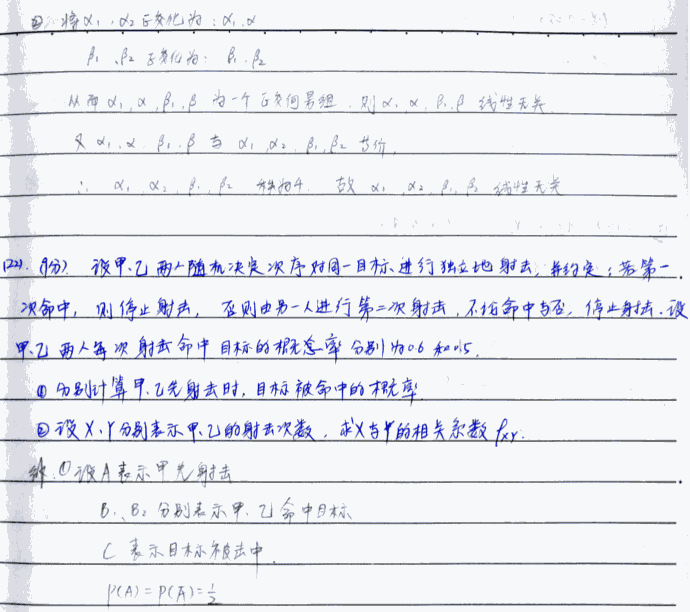 ② 将α₁,α₂正交化为:α₁,α
β₁,β₂正交化为:β₁,β₂
从而α₁,α,β₁,β为一个正交向量组,则α₁,α,β₁,β线性无关
又α₁,α,β₁,β与α₁,α₂,β₁,β₂等价,
∴ α₁,α₂,β₁,β₂ 秩为4. 故α₁,α₂,β₁,β₂线性无关
(22). 9分) 设甲、乙两人随机决定次序对同一目标进行独立地射击,并约定:若第一
次命中,则停止射击,否则由另一人进行第二次射击,不论命中与否,停止射击.设
甲、乙两人每次射击命中目标的概率分别为0.6和0.5.
① 分别计算甲、乙先射击时,目标被命中的概率
② 设X、Y分别表示甲、乙的射击次数,求X与Y的相关系数ρxy.
解 ①设A表示甲先射击
B₁、B₂分别表示甲、乙命中目标
C 表示目标被击中
P(A)=P(Ā)=½